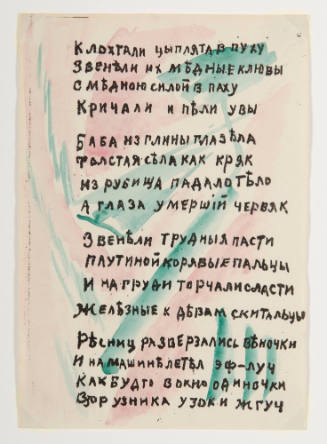 Клохтали цыплята в пуху
Звенели их мѣдные клювы
С мѣдною силой в паху
Кричали и пѣли увы
Баба из глины глазѣла
Толстая сѣла как кряк
Из рубища падало тѣло
А глаза умершій червяк
Звенѣли трудныя пасти
Паутиной корявые пальцы
И на груди торчали сласти
Желѣзные к дѣвам скитальцы
Рѣсниц разверзались вѣночки
И на машинѣ летѣл эф-луч
Как будто в окно одиночки
Взор узника узок и жгуч